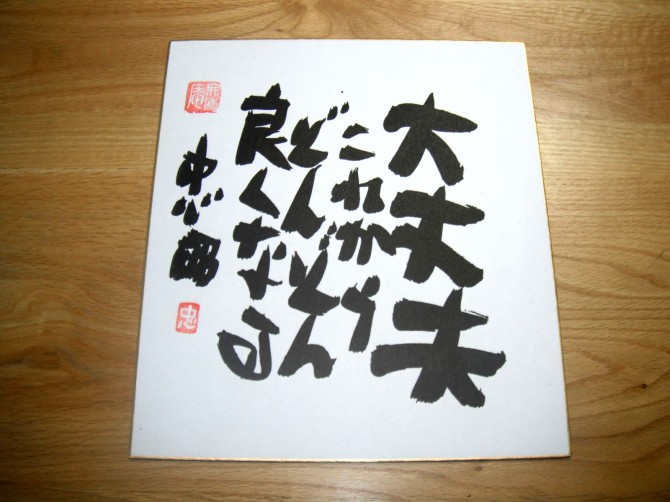 大丈夫
これから
どんどん
良くなる
忠